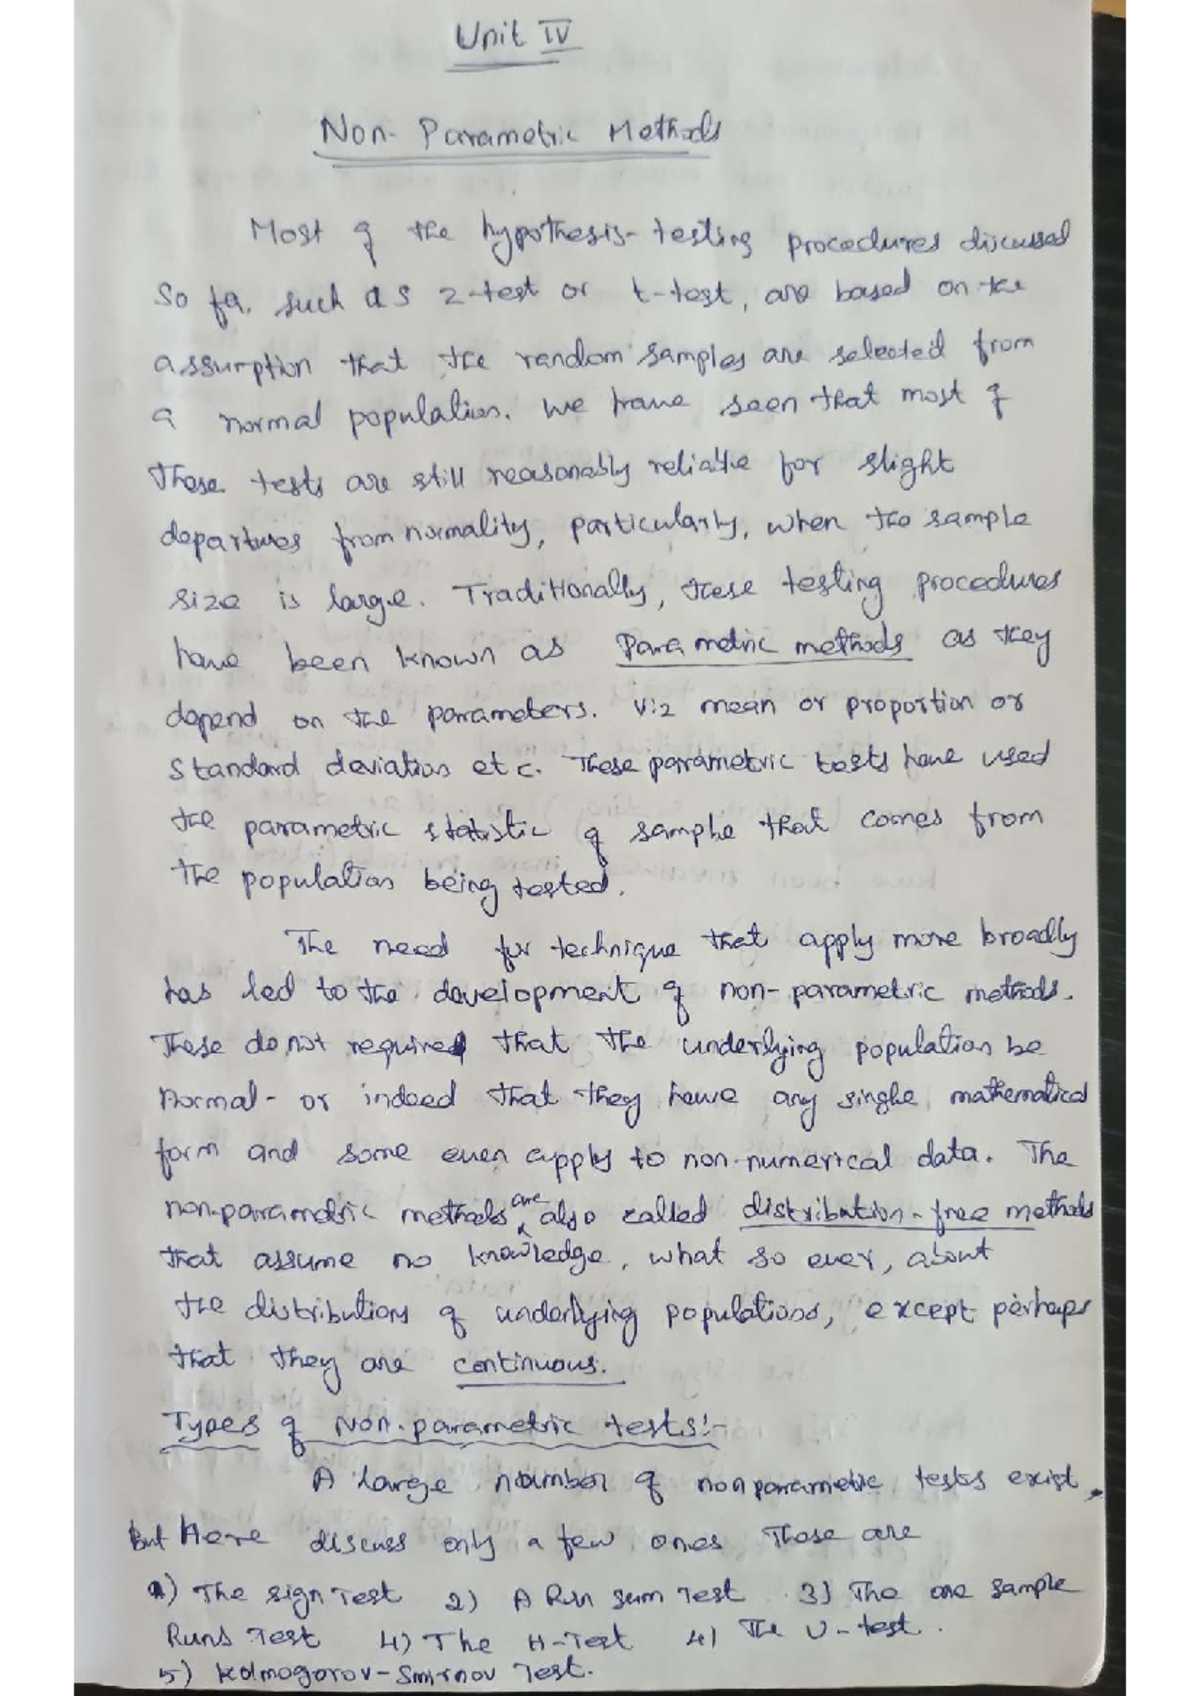 Unit IV
Non-Parametric Methods
Most of the hypothesis-testing procedures discussed
so fa. such as z-test or t-test, are based on the
assumption that the random samples are selected from
a normal population. We have seen that most of
These tests are still reasonably reliable for slight
departures from normality, particularly, when the sample
size is large. Traditionally, these testing procedures
have been known as Parametric methods as they
depend on the parameters. viz mean or proportion or
Standard deviation etc. These parametric tests have used
the parametric statistic of sample that comes from
the population being tested.
The need for technique that apply more broadly
has led to the development of non-parametric methods.
These do not require that the underlying population be
normal- or indeed that they have any single mathematical
form and some even apply to non-numerical data. The
non-parametric methods are also called distribution-free methods
that assume no knowledge, what so ever, about
the distributions of underlying populations, except perhaps
that they are continuous.
Types of Non-parametric tests:-
A large number of nonparametric tests exist,
But Here discuss only a few ones Those are
1) The sign Test 2) A Run Sum Test 3) The one sample
Runs Test 4) The H-Test 4) The U-test.
5) Kolmogorov-Smirnov Test.